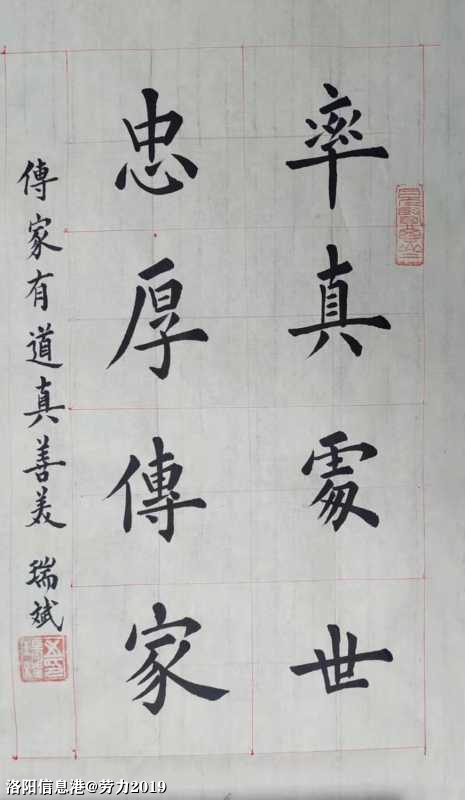 率真處世
忠厚傳家
傳家有道真善美 瑞斌
洛阳信息港@劳力2019